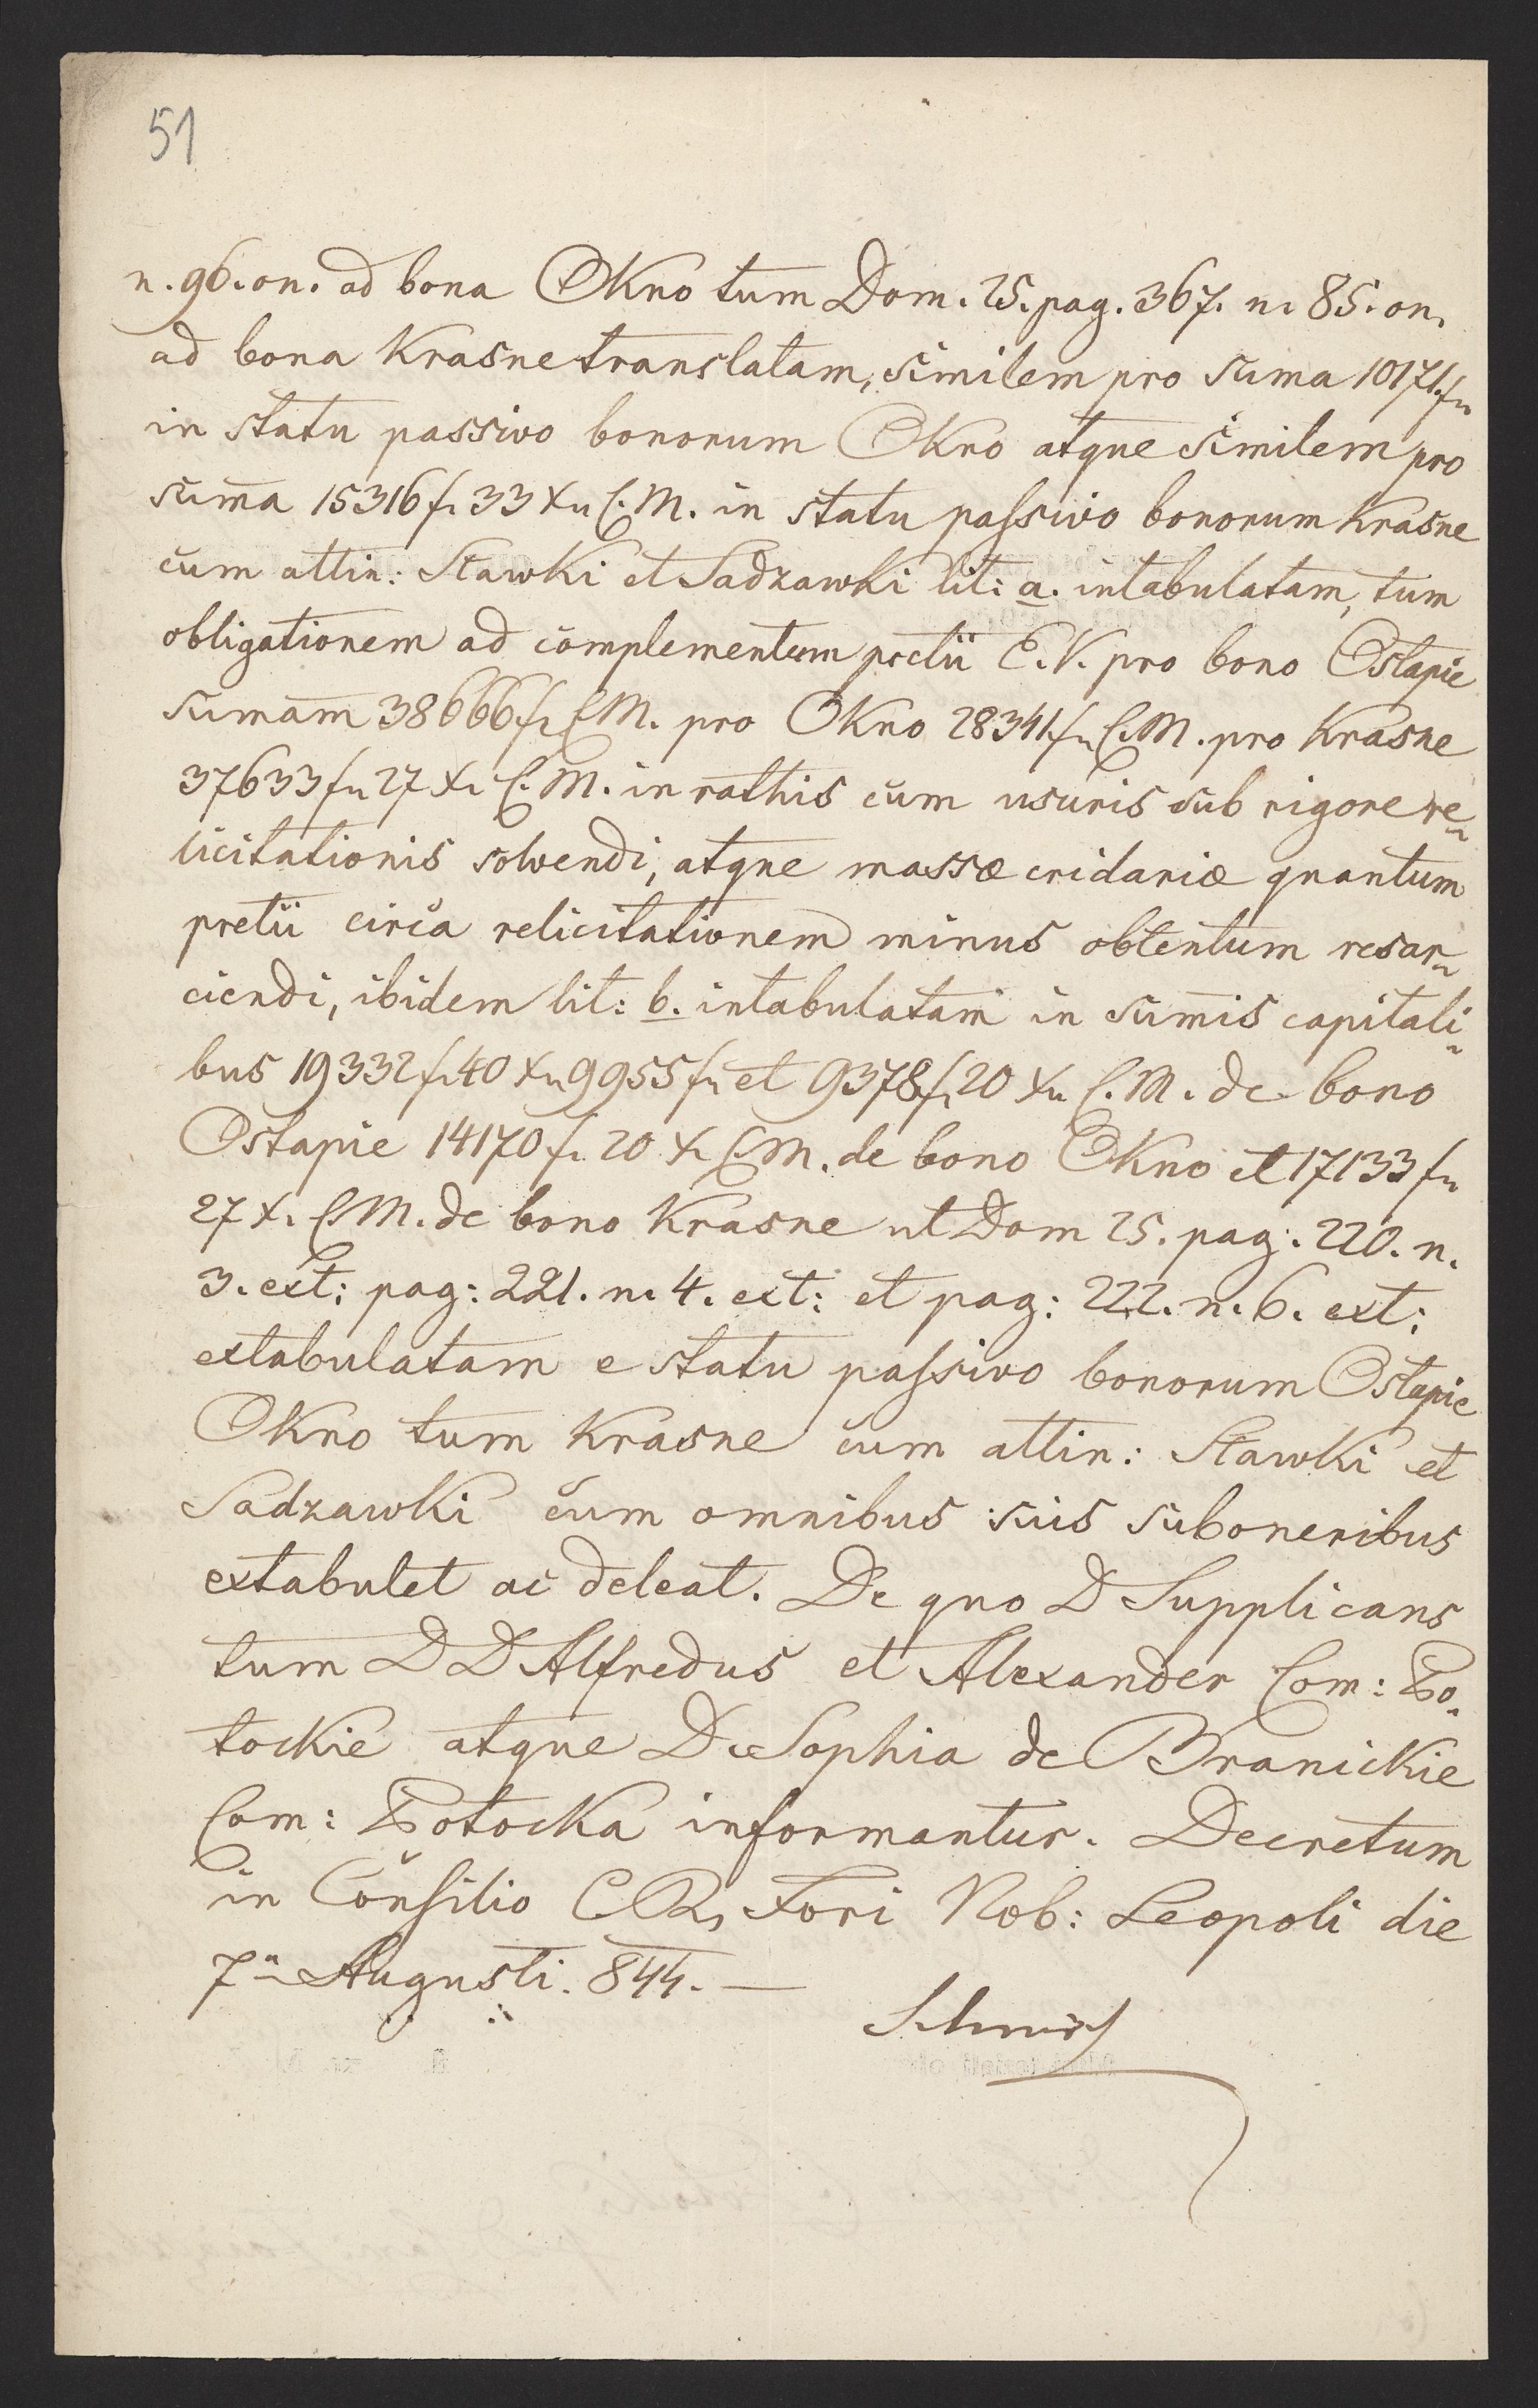 51
n. 96. on. ad bona Okno tum Dom. 25. pag. 367. n. 85. on.
ad bona Krasne translatam, similem pro suma 10171 f.
in statu passivo bonorum Okno atque similem pro
sum̄a 15316 f. 33 x. C. M. in statu passivo bonorum Krasne
cum attin: Stawki et Sadzawki lit: a. intabulatam, tum
obligationem ad complementum pretii E. V. pro bono Ostapie
sumam̄ 38666 f. C. M. pro Okno 28341 f. C. M. pro Krasne
37633 f. 27 x. C. M. in rathis cum usuris sub rigore re-
licitationis solvendi, atque massæ cridariæ quantum
pretii circa relicitationem minus obtentum resar-
ciendi, ibidem lit: b. intabulatam in sum̄is capitali-
bus 19332 f. 40 x. 9955 f. et 9378 f. 20 x. C. M. de bono
Ostapie 14170 f. 20 x. C. M. de bono Okno et 17133 f.
27 x. C. M. de bono Krasne ut Dom 25. pag: 220. n.
3. ext: pag: 221. n. 4. ext: et pag: 222. n. 6. ext:
extabulatam e statu passivo bonorum Ostapie
Okno tum Krasne cum attin: Stawki et
Sadzawki cum omnibus suis suboneribus
extabulet ac deleat. De quo D Supplicans
tum D D Alfredus et Alexander Com: Po-
tockie atque D. Sophia de Branickie
Com: Potocka informantur. Decretum
in Consilio C. R. Fori Nob: Leopoli die
7a Augusti. 844. —